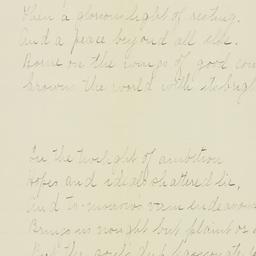 Then a glorious light of resting.
And a peace beyond all else.
Borne on the wings of good
Crowns the world with its brigh
In the twilight of ambition
Hopes and ideals shattered lie,
And to-morrows vain endeavours
Brings us nought but plaint or
But the